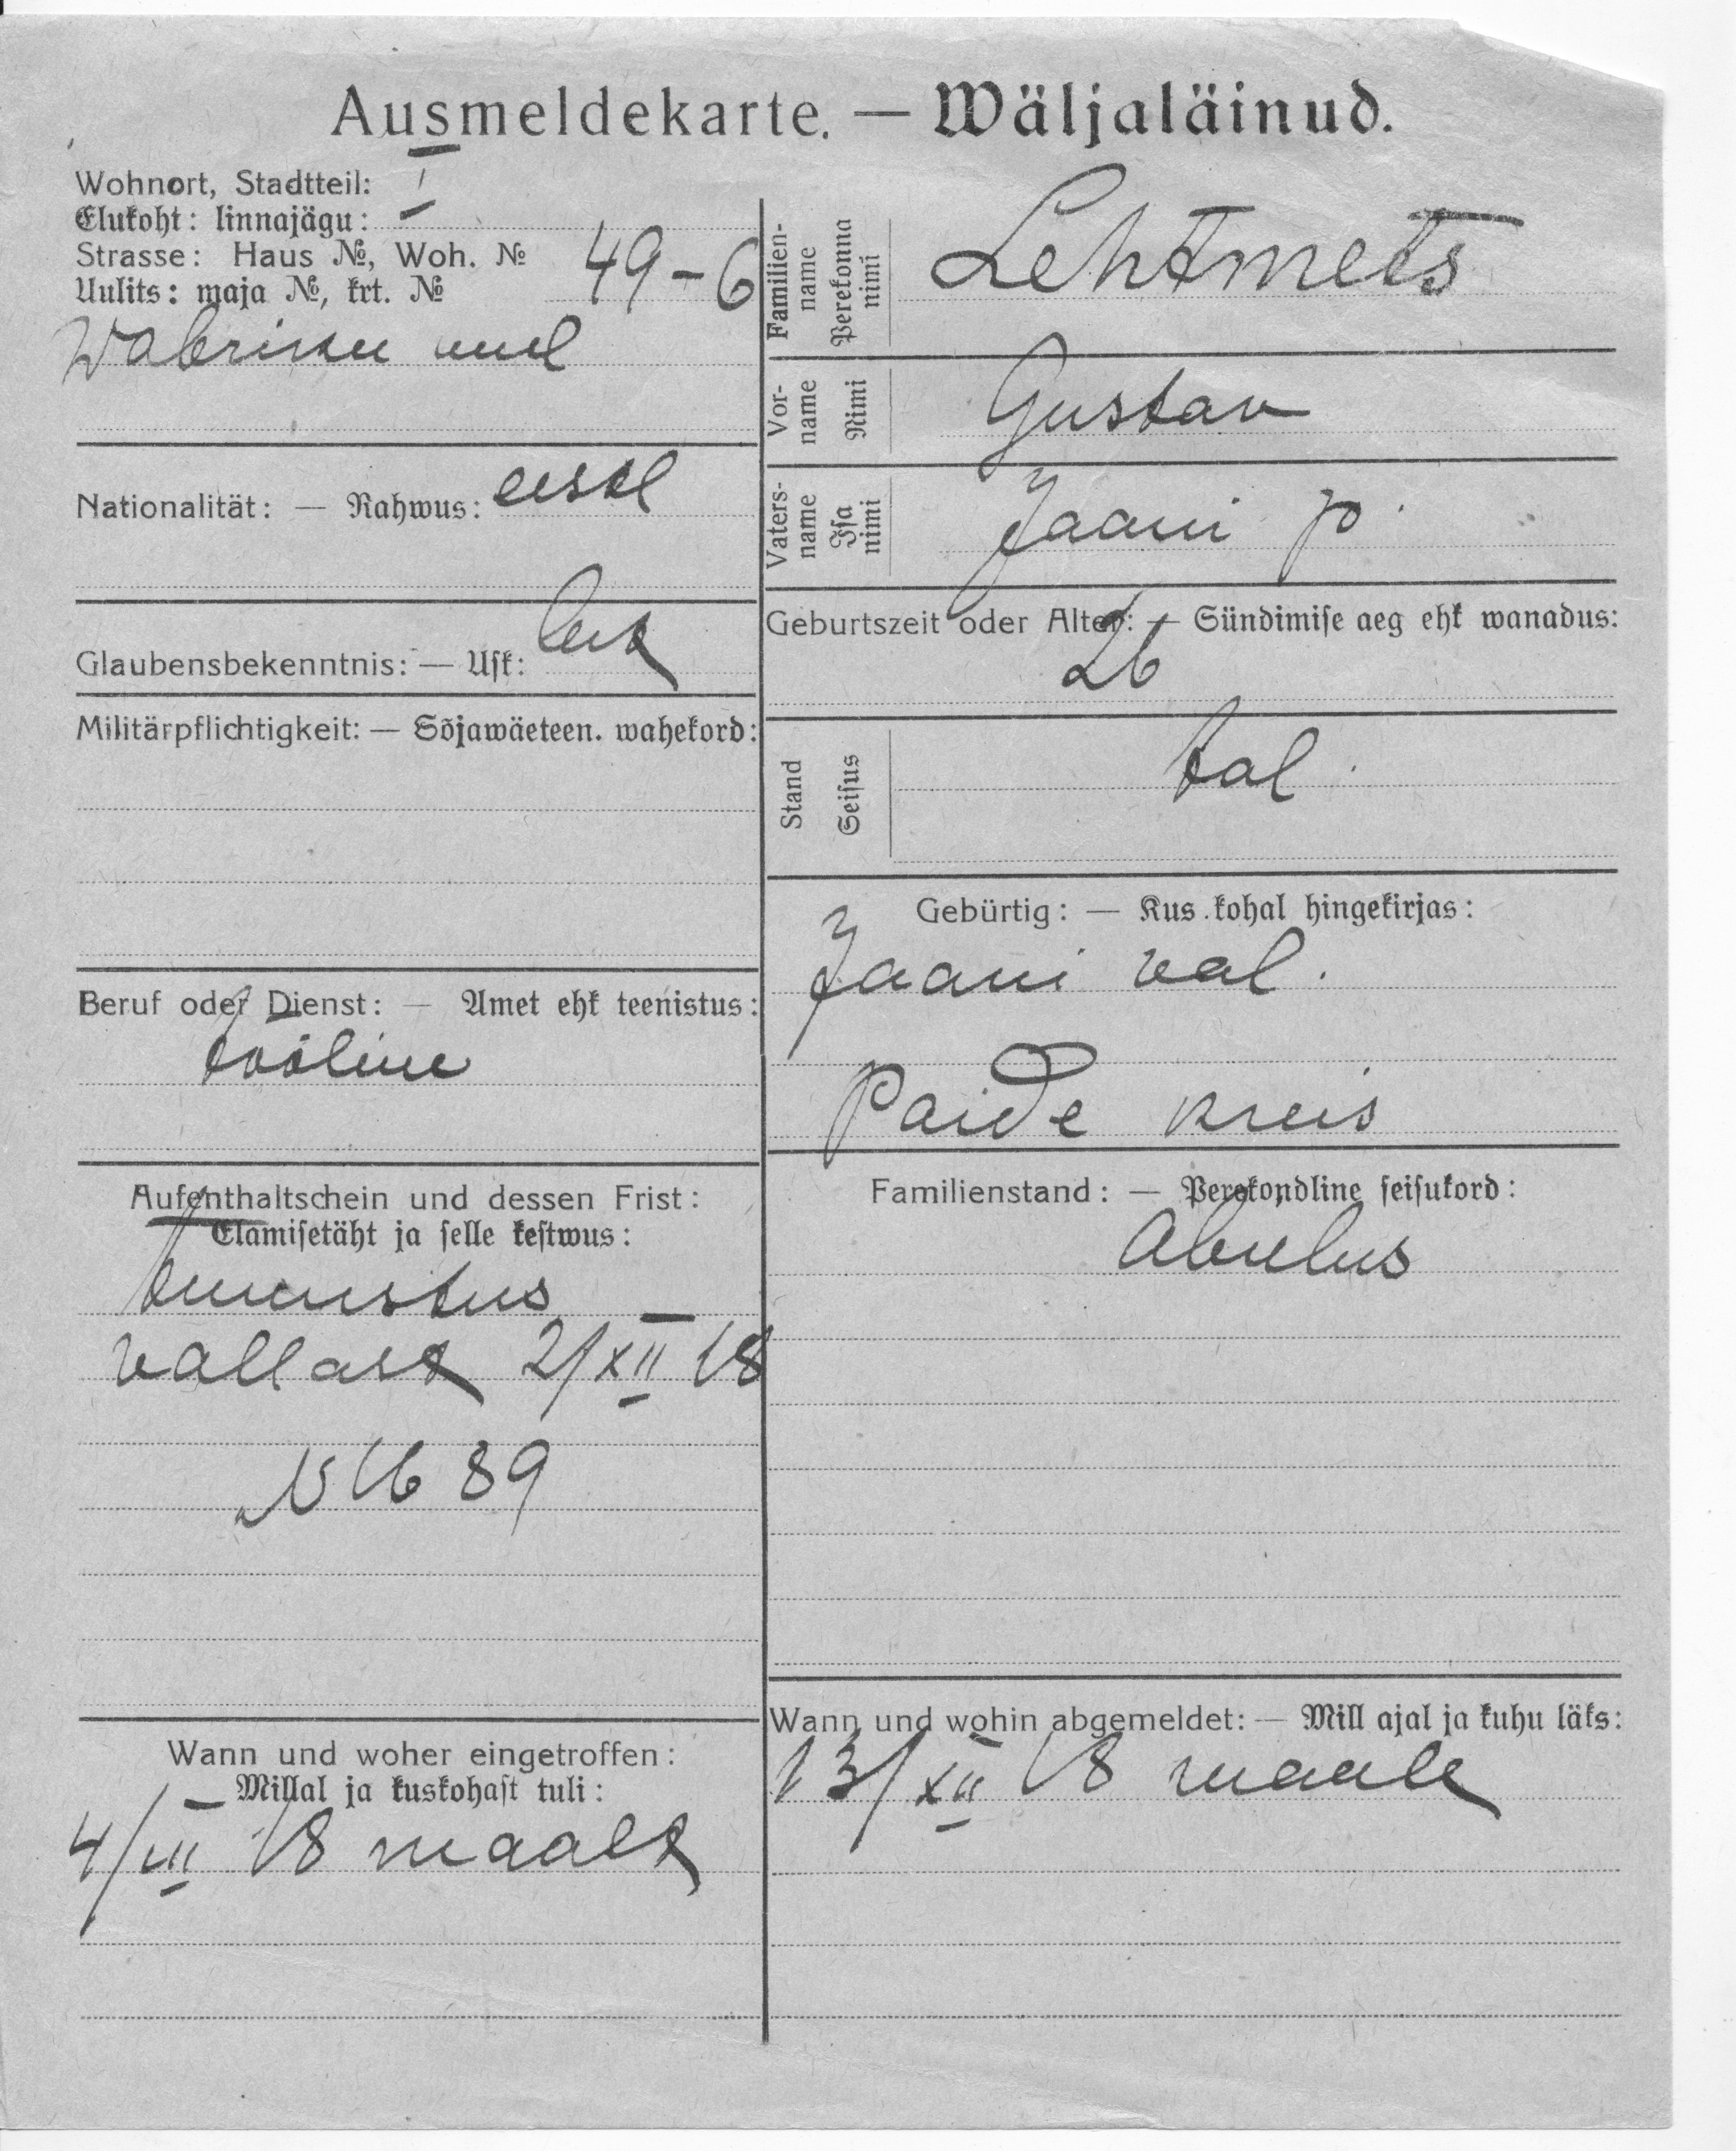 Ausmeldekarte. — Wäljaläinud.
Wohnort, Stadtteil: I
Elukoht: linnajägu:
Strasse: Haus №, Woh. № 49-6
Uulits: maja №, krt. №
Wabriku uul
Nationalität: — Rahwus: eestl
Glaubensbekenntnis: — Usk: lut
Militärpflichtigkeit: — Sõjawäeteen. wahekord:
Beruf oder Dienst: — Amet ehk teenistus:
tööline
Aufenthaltschein und dessen Frist:
Elamisetäht ja selle kestwus:
tunnistus
vallast 2/XII 18
N 1689
Wann und woher eingetroffen:
Millal ja kuskohast tuli:
4/III 18 maalt
Familien-name
Perekonna nimi
Lehtmets
Vor-name
Nimi
Gustav
Vaters-name
Isa nimi
Jaani p.
Geburtszeit oder Alter: — Sündimise aeg ehk wanadus:
26
Stand
Seisus
tal.
Gebürtig: — Kus kohal hingekirjas:
Jaani val.
Paide kreis
Familienstand: — Perekondline seisukord:
Abielus
Wann und wohin abgemeldet: — Mill ajal ja kuhu läks:
13/XII 18 maale